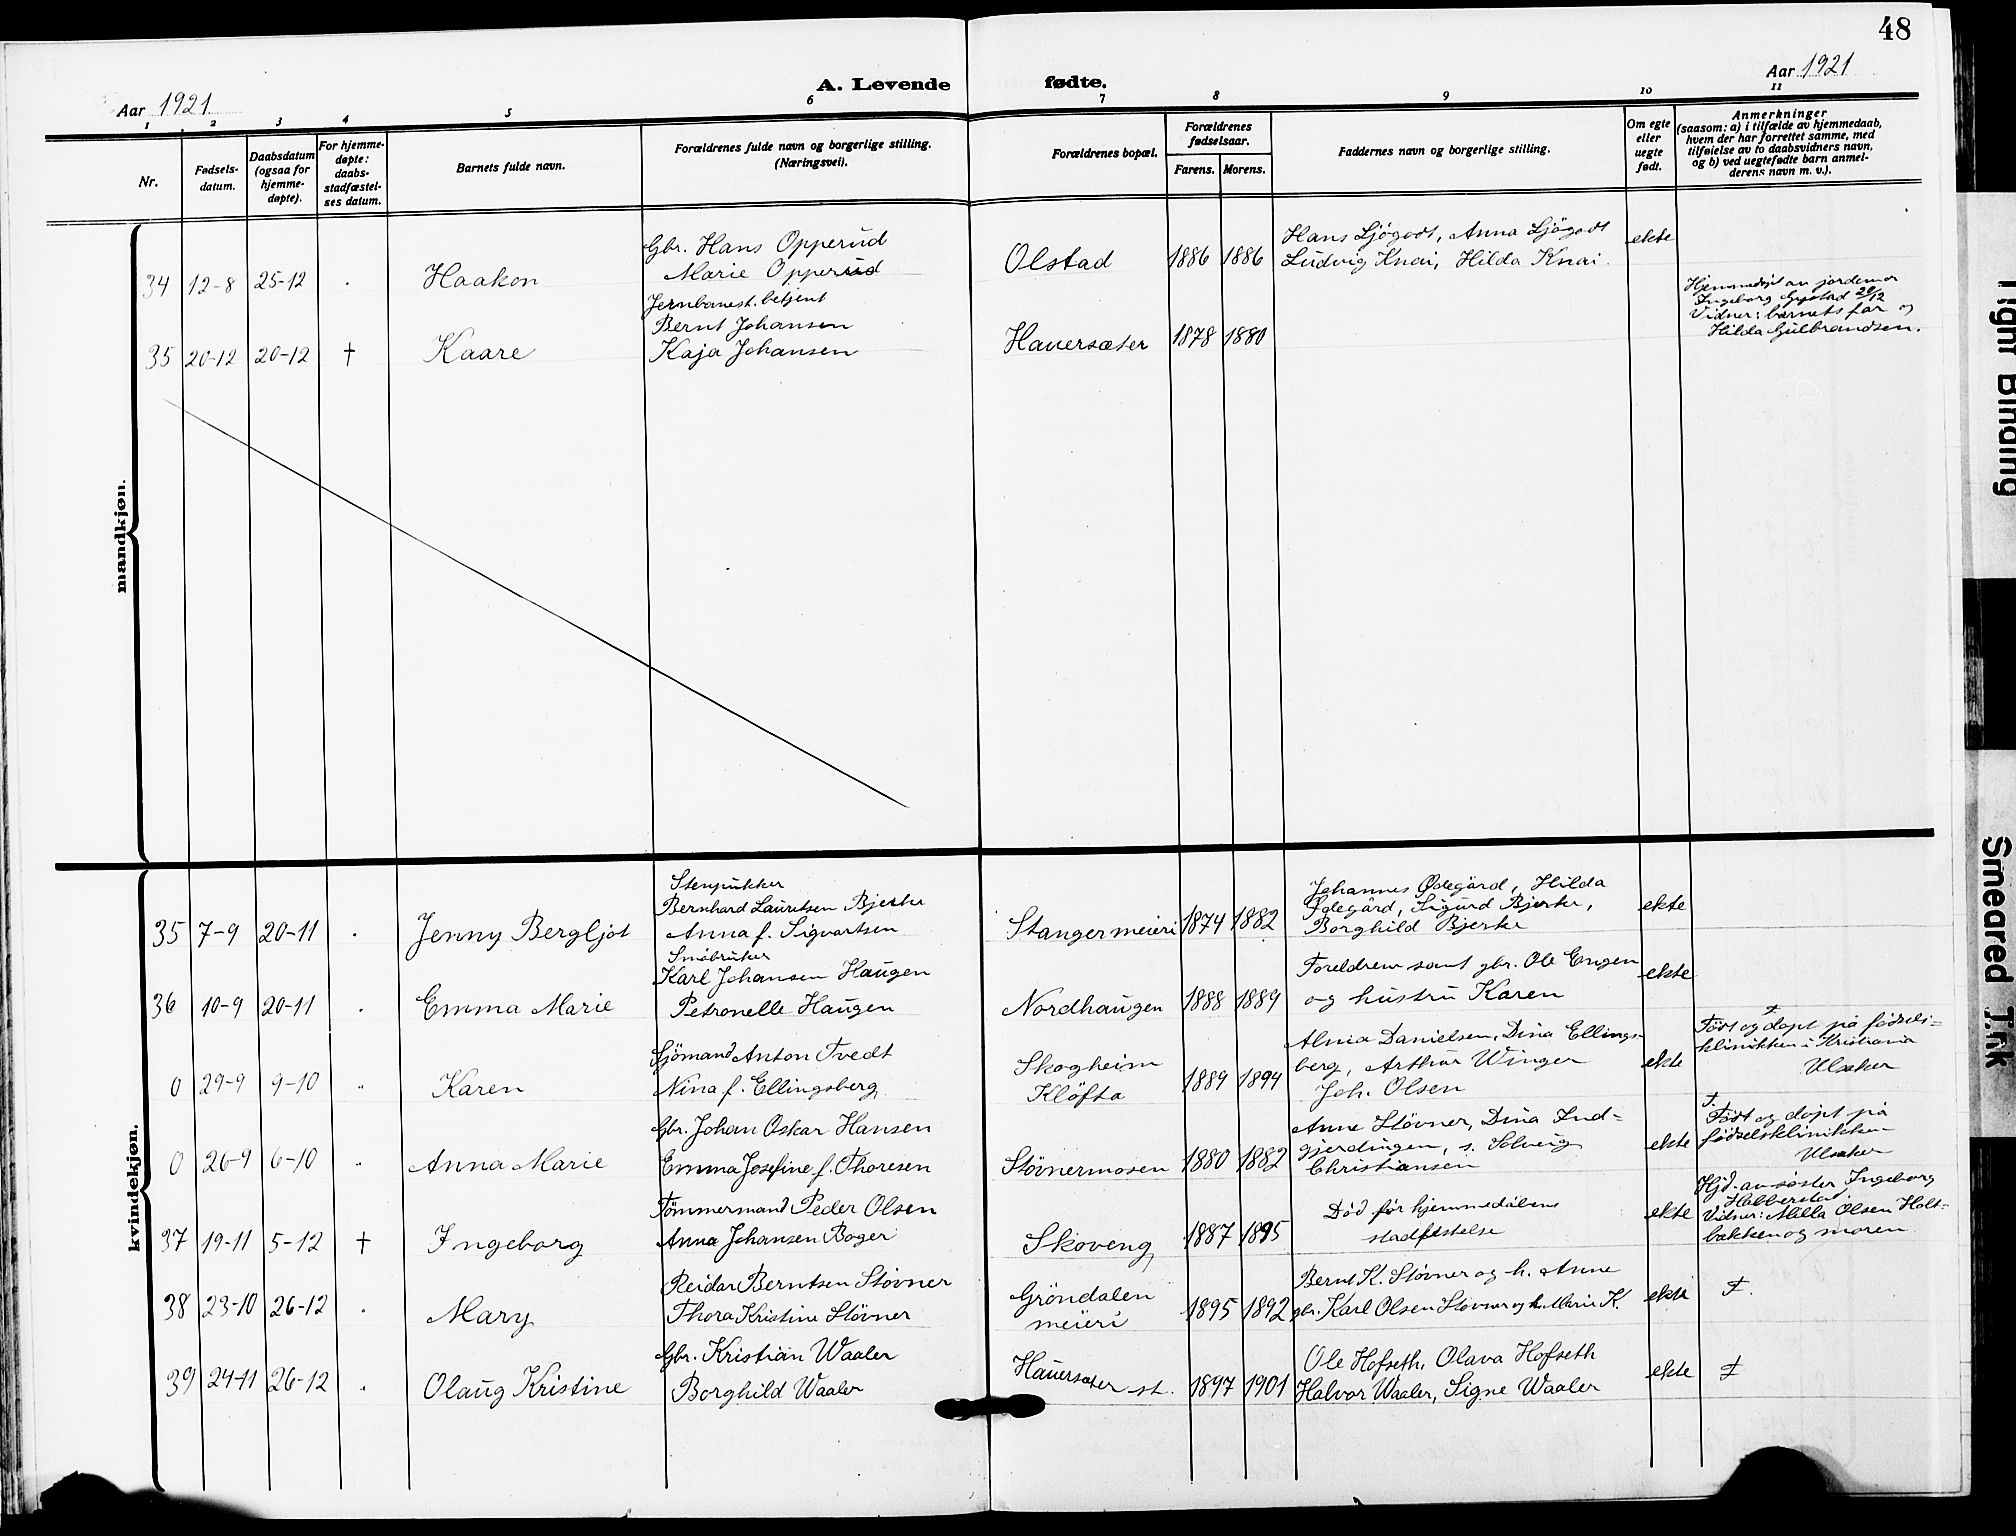 48
Aar 1921
A. Levende fødte.
Aar 1921
1 2 3 4 5 6 7 8 9 10 11
Nr.
Fødsels-
datum.
Daabsdatum
(ogsaa for
hjemme-
døpte).
For hjemme-
døpte:
daabs-
stadfæstel-
ses datum.
Barnets fulde navn.
Forældrenes fulde navn og borgerlige stilling.
(Næringsvei).
Forældrenes bopæl.
Forældrenes
fødselsaar.
Farens. Morens.
Faddernes navn og borgerlige stilling.
Om egte
eller
uegte
født.
Anmerkninger
(saasom: a) i tilfælde av hjemmedaab,
hvem der har forrettet samme, med
tilføielse av to daabsvidners navn,
og b) ved uegtefødte barn anmel-
derens navn m. v.).
mandkjøn.
Gbr. Hans Opperud
Marie Opperud
34 12-8 25-12 . Haakon
Olstad 1886 1886
Hans Ljøgodt, Anna Ljøgodt
Ludvig Knai, Hilda Knai.
ekte
Jernbanest. betjent
Bernt Johansen
Kaja Johansen
35 20-12 20-12 † Kaare
Hauersæter 1878 1880
Hjemmedøpt av jordemor
Ingeborg Gystad 20/12
Vidner: barnets far og
Hilda Gulbrandsen.
kvindekjøn.
Stenpukker
Bernhard Lauritsen Bjerke
Anna f. Sigvartsen
35 7-9 20-11 . Jenny Bergljot
Stangermeieri 1874 1882
Johannes Ødegård, Hilda
Ødegård, Sigurd Bjerke,
Borghild Bjerke
ekte
Småbruker
Karl Johansen Haugen
Petronelle Haugen
36 10-9 20-11 . Emma Marie
Nordhaugen 1888 1889
Foreldrene samt gbr. Ole Engen
og hustru Karen
ekte
Sjömand Anton Tvedt
Nina f. Ellingsberg
0 29-9 9-10 " Karen
Skogheim
Klöfta
1889 1894
Danielsen, Dina Ellings-
berg, Arthur Winger
Joh. Olsen
ekte
Født og døpt på fødsels-
klinikken i Kristiania
Ulsaker
Gbr. Johan Oskar Hansen
Emma Josefine f. Thoresen
0 26-9 6-10 " Anna Marie
Støvnermosen 1880 1882
Anne Støvner, Dina Ind-
gjerdingen, s. Solveig
Christiansen
ekte
Født og døpt på
fødselsklinikken
Ulsaker
Tömmermand Peder Olsen
Anna Johansen Boger
37 19-11 5-12 † Ingeborg
Skoveng 1887 1895
Död før hjemmedåbens
stadfestelse
ekte
Hjd. av søster Ingeborg
Habberstad
Vidner: Milla Olsen Holt-
bakken og moren
Reidar Berntsen Støvner
Thora Kristine Støvner
38 23-10 26-12 . Mary
Gröndalen
meieri
1895 1892
Bernt K. Støvner og h. Anne
gbr. Karl Olsen Støvner og h. Marie K.
ekte
Gbr. Kristian Waaler
Borghild Waaler
39 24-11 26-12 . Olaug Kristine
Hauersæter st. 1897 1901
Ole Hofseth, Olava Hofseth
Halvor Waaler, Signe Waaler
ekte
Tight Binding
Smeared Ink